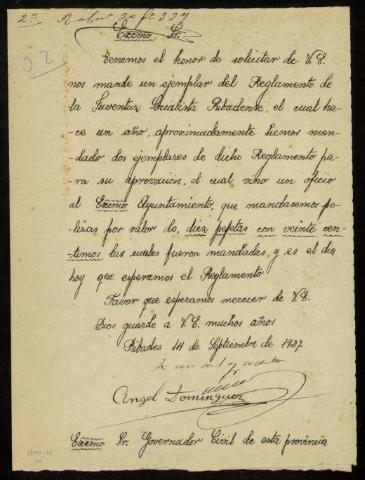 2ª
Excmo Sr.
92
Tenemos el honor de solicitar de V.E.
nos mande un ejemplar del Reglamento de
la Juventuz Socialista Ribadense, el cual ha-
ce un año, aproximadamente hemos man-
dado dos ejemplares de dicho Reglamento pa-
ra su aprovación, el cual vino un oficio
al Excmo Ayuntamiento, que mandasemos po-
lizas por valor de, diez pesetas con veinte cen-
timos las cuales fueron mandadas, y es el dia
hoy que esperemos el Reglamento
Favor que esperamos merecer de V.E.
Dios guarde a V.E. muchos años
Ribadeo de Septiembre de 1927
Angel Dominguez
Excmo Sr. Governador Civil de esta provincia